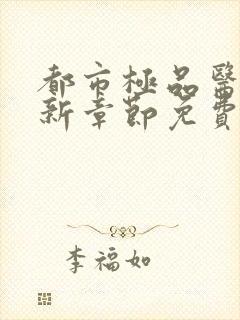 都市極品醫
新章節免費
李福如